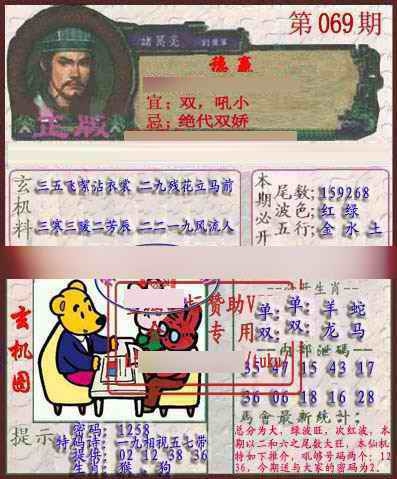 第069期
諸葛亮
正版
穩贏
宜：双，吼小
忌：绝代双娇
玄机料
三五飞絮沾衣裳 二九残花立马前
三寒三暖二芳辰 二二一九风流人
本期必开
尾数:159268
波色:红 绿
五行:金水土
赞助V
专用
玄机图
开生肖
单:单:羊蛇
双:双:龙马
内部泄码
35 47 15 43 17
36 06 18 16 38
馬會最新统计:
总分为大，绿波旺，次红波，本期以二和六之尾数大旺，本仙机特如下推介，吼够号码两个：1236，今期送与大家的密码为2.
提示
密码: 1258
特码诗: 一九相视五七带
提供: 02 12 38 36
生肖: 猴、狗